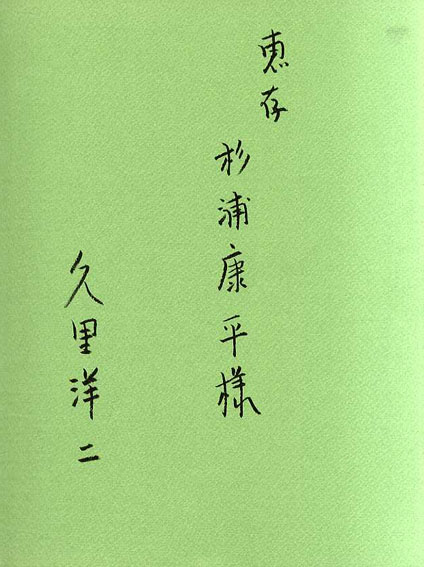 恵存
杉浦康平様
久里洋二